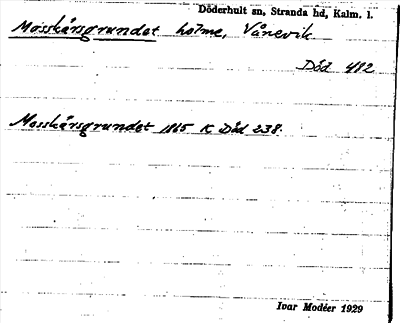 Döderhult sn, Stranda hd, Kalm. l.
Mosskärsgrundet holme, Vånevik
Död 482
Mosskärsgrundet 1865 K Död 238.
Ivar Modéer 1929